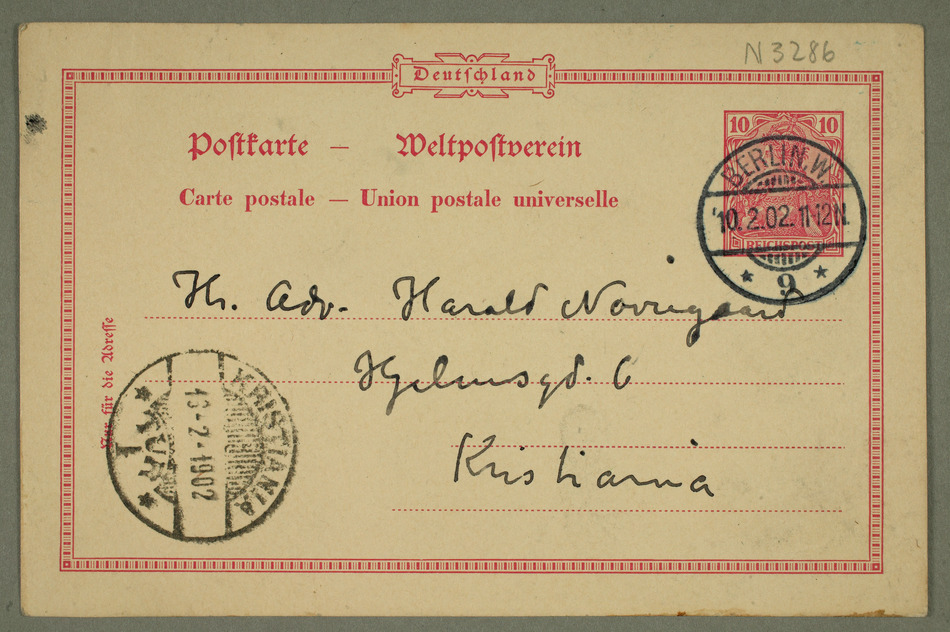 N 3286
Deutschland
Postkarte – Weltpostverein
Carte postale – Union postale universelle
10 10
REICHSPOST
BERLIN. W.
10.2.02. 11-12V.
* 9 *
Hr. Adv. Harald Nørregaard
Hjelmsgd. 6
Kristiania
Nur für die Adresse
KRISTIANIA
13-2-1902
* 1 TUR *